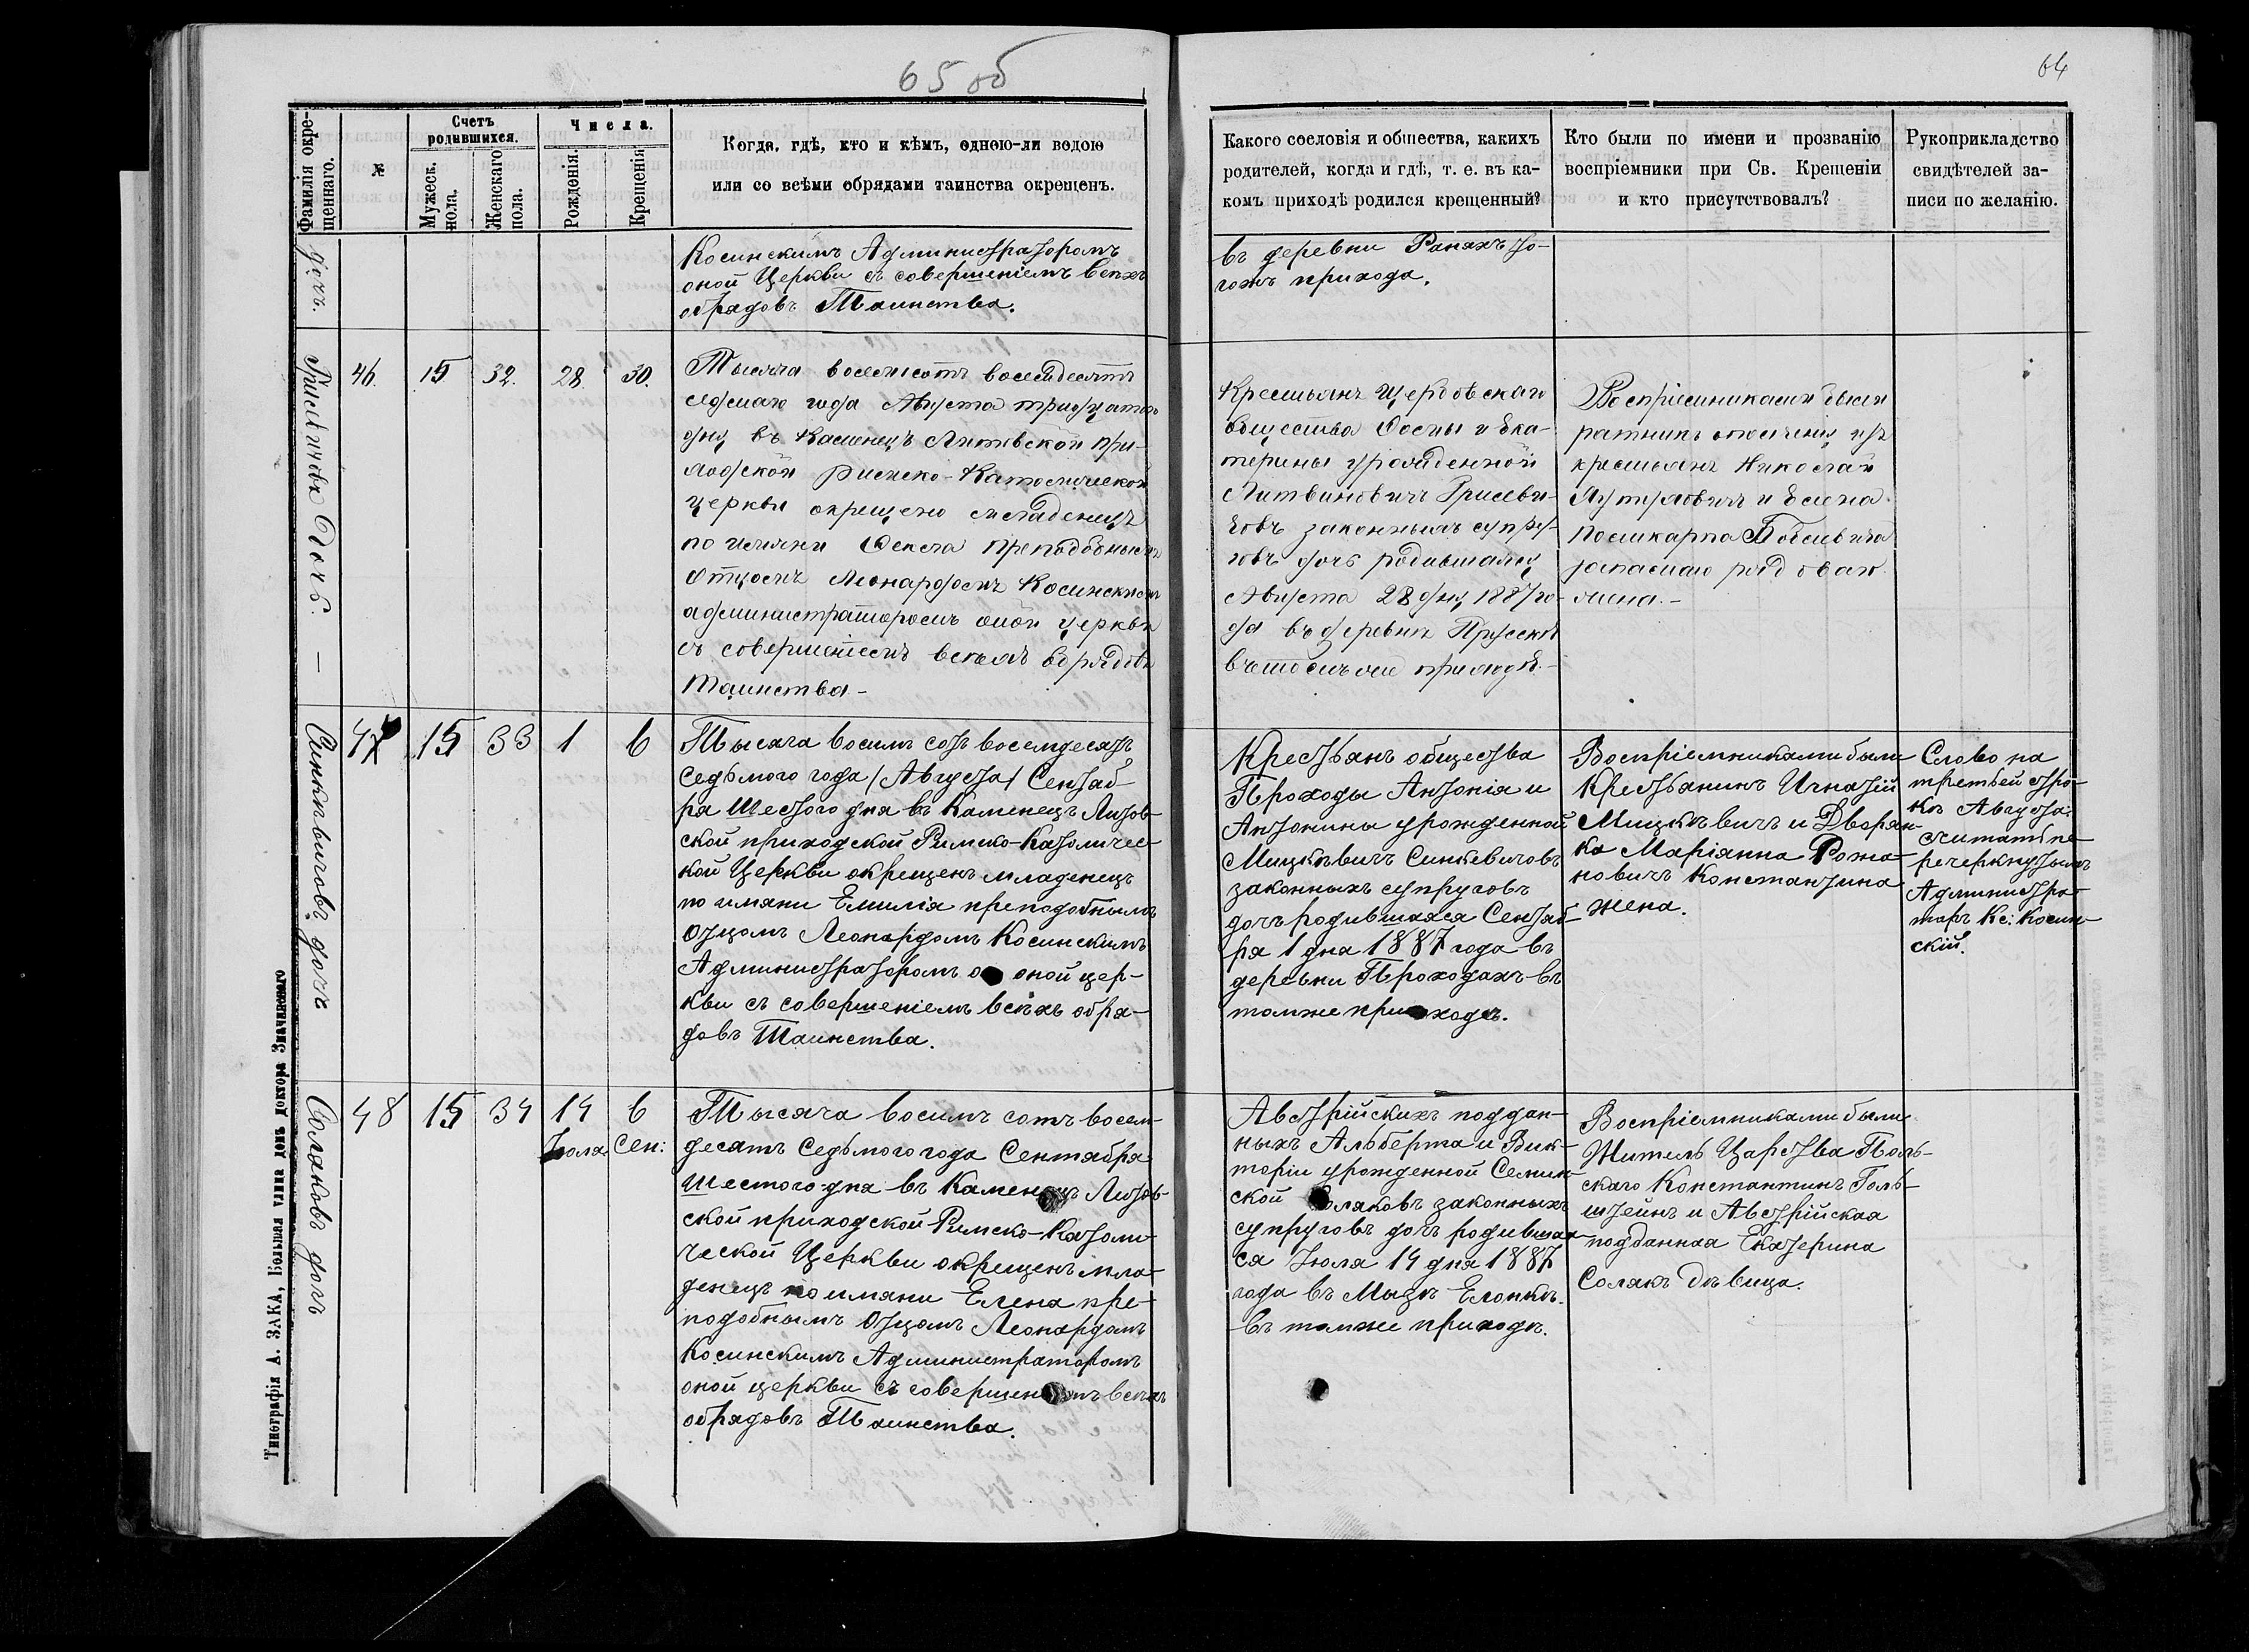 65 об
64
Фамилія окре-
щеннаго.
№
Счетъ
родившихся.
Мужеск.
пола.
Женскаго
пола.
Числа.
Рожденія.
Крещенія
Когда, гдѣ, кто и кѣмъ, одною-ли водою
или со всѣми обрядами таинства окрещенъ.
Какого сословія и общества, какихъ
родителей, когда и гдѣ, т. е. въ ка-
комъ приходѣ родился крещенный?
Кто были по имени и прозванію
воспріемники при Св. Крещеніи
и кто присутствовалъ?
Рукоприкладство
свидѣтелей за-
писи по желанію.
дочь.
Косинскимъ Администраторомъ
оной Церкви съ совершеніемъ всѣхъ
обрядовъ Таинства.
въ деревни
гожъ прихода.
46.
15
32.
28
30.
Тысяча восемьсотъ восемдесятъ
седмаго года Августа тридцатого
дня въ Каменецъ Литовской при-
ходской Римско-Католической
церкви окрещено младенецъ
по имяни преподобнымъ
Отцомъ Леонардомъ Косинскимъ
администраторомъ оной церкви
съ совершеніемъ всехъ обрядовъ
таинства-
Крестьянъ
общества и Ека-
терины урожденной
Литвиновичъ Грисеви-
човъ законныхъ супру-
говъ дочь родившаяся
Августа 28 дня 1887 го-
да въ деревни
въ томъ же приходѣ.-
Воспріемниками были
ратникъ ополченія изъ
крестьянъ Николай
и Елена
запаснаго рядоваго
жена.-
Синкѣвичовъ дочь
47
15
33
1
6
Тысяча восимъ сотъ восемдесятъ
Седьмого года /Августа/ Сентяб-
ря Шестого дня въ Каменецъ Литов-
ской приходской Римско-Католичес-
кой Церкви окрещенъ младенецъ
по имяни Емилія преподобнымъ
Отцомъ Леонардомъ Косинскимъ
Администраторомъ о оной цер-
кви съ совершеніемъ всѣхъ обря-
довъ Таинства.
Крестьянъ общества
Проходы Антонія и
Антонины урожденной
Мицкѣвичъ Синкевичовъ
законныхъ супруговъ
дочь родившаяся Сентяб-
ря 1 дня 1887 года въ
деревни Проходахъ въ
томже приходѣ.
Воспріемниками были
Крестьянинъ Игнатій
Мицкѣвичъ и Дворян-
ка Маріанна Рома-
новичъ Константина
жена.
Слово на
третьей стро-
кѣ Августа
считать пе-
речеркнутымъ
Администра-
торъ Кс: Косин-
скій.
Соляковъ дочь
48
15
34
14
Іюля
6
Сен:
Тысяча восимъ сотъ восем-
десятъ Седьмого года Сентября
Шестого дня въ Каменецъ Литов-
ской приходской Римско-Католи-
ческой Церкви окрещенъ мла-
денецъ по имяни Елена пре-
подобнымъ Отцомъ Леонардомъ
Косинскимъ Администраторомъ
оной церкви съ совершеніемъ всѣхъ
обрядовъ Таинства.
Австрійскихъ поддан-
ныхъ Альберта и Вик-
торіи урожденной Семин-
ской Соляковъ законныхъ
супруговъ дочь родившая-
ся Іюля 14 дня 1887
года въ
въ томже приходѣ.
Воспріемниками были
Житель Царства Поль-
скаго Константинъ Голь-
штейнъ и Австрійская
подданная Екатерина
Солякъ Дѣвица.
Типографія А. ЗАКА, Большая улица домъ доктора Значковаго